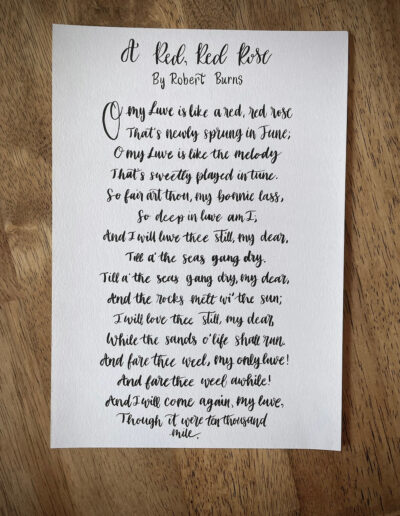 A Red, Red Rose
By Robert Burns
O my Luve is like a red, red rose
That's newly sprung in June;
O my Luve is like the melody
That's sweetly played in tune.
So fair art thou, my bonnie lass,
So deep in luve am I;
And I will luve thee still, my dear,
Till a' the seas gang dry.
Till a' the seas gang dry, my dear,
And the rocks melt wi' the sun;
I will love thee still, my dear,
While the sands o' life shall run.
And fare thee weel, my only luve!
And fare thee weel awhile!
And I will come again, my luve,
Though it were ten thousand
mile.